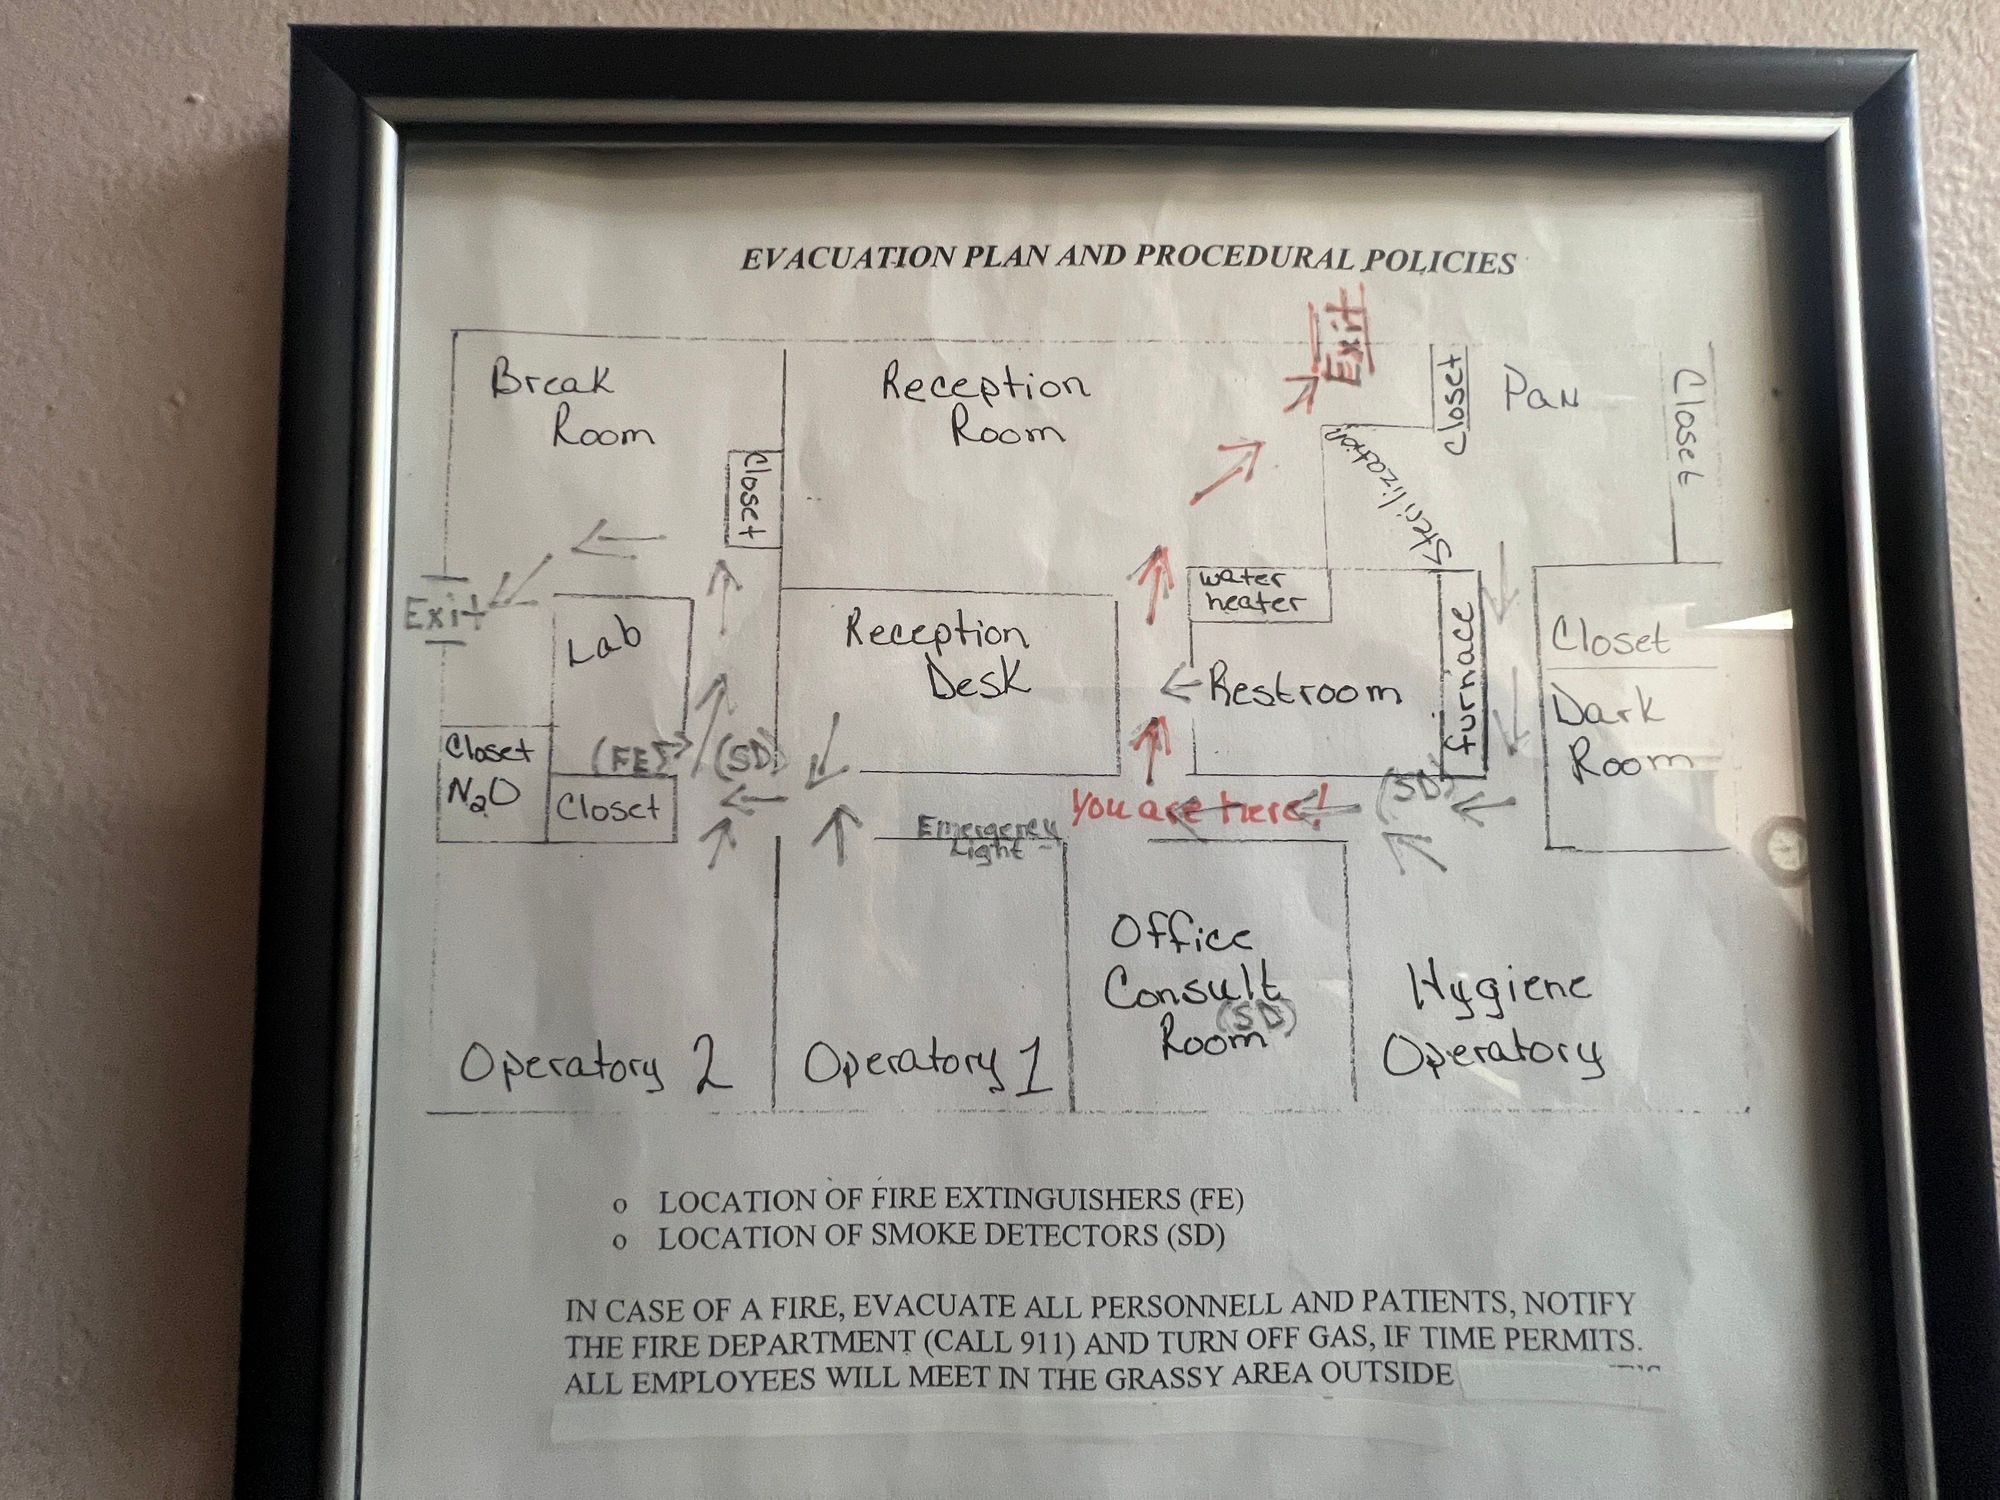 EVACUATION PLAN AND PROCEDURAL POLICIES
Exit
Break
Room
Reception
Room
Closet
Pan
Closet
Closet
Sterilization
Exit
Lab
Reception
Desk
water
heater
Restroom
furnace
Closet
Dark
Room
Closet
N2O
(FE)
(SD)
Closet
You are here!
(SD)
Emergency
Light
Office
Consult
(SD)
Room
Hygiene
Operatory
Operatory 2
Operatory 1
o LOCATION OF FIRE EXTINGUISHERS (FE)
o LOCATION OF SMOKE DETECTORS (SD)
IN CASE OF A FIRE, EVACUATE ALL PERSONNELL AND PATIENTS, NOTIFY
THE FIRE DEPARTMENT (CALL 911) AND TURN OFF GAS, IF TIME PERMITS.
ALL EMPLOYEES WILL MEET IN THE GRASSY AREA OUTSIDE